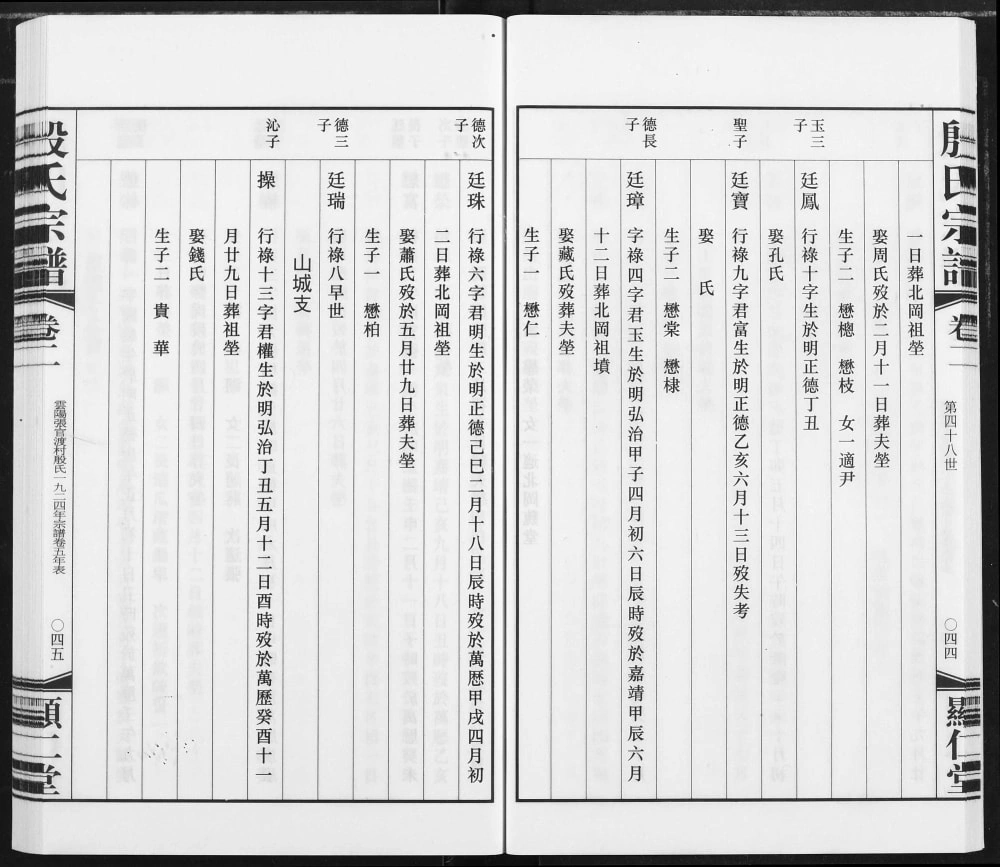 殷氏宗譜
卷二
第四十八世
〇四四
顯仁堂
一日葬北岡祖塋
娶周氏歿於二月十一日葬夫塋
生子二 懋樬 懋枝 女一適尹
玉三子
廷鳳 行祿十字生於明正德丁丑
娶孔氏
聖子
廷寶 行祿九字君富生於明正德乙亥六月十三日歿失考
娶 氏
生子二 懋棠 懋棣
德長子
廷璋 字祿四字君玉生於明弘治甲子四月初六日辰時歿於嘉靖甲辰六月
十二日葬北岡祖墳
娶臧氏歿葬夫塋
生子一 懋仁
德次子
廷珠 行祿六字君明生於明正德己巳二月十八日辰時歿於萬曆甲戌四月初
二日葬北岡祖塋
娶蕭氏歿於五月廿九日葬夫塋
生子一 懋柏
德三子
廷瑞 行祿八早世
山城支
沁子
操 行祿十三字君權生於明弘治丁丑五月十二日酉時歿於萬歷癸酉十一
月廿九日葬祖塋
娶錢氏
生子二 貴 華
殷氏宗譜
卷二
雲陽張官渡村殷氏一九二四年宗譜卷五年表
〇四五
顯仁堂